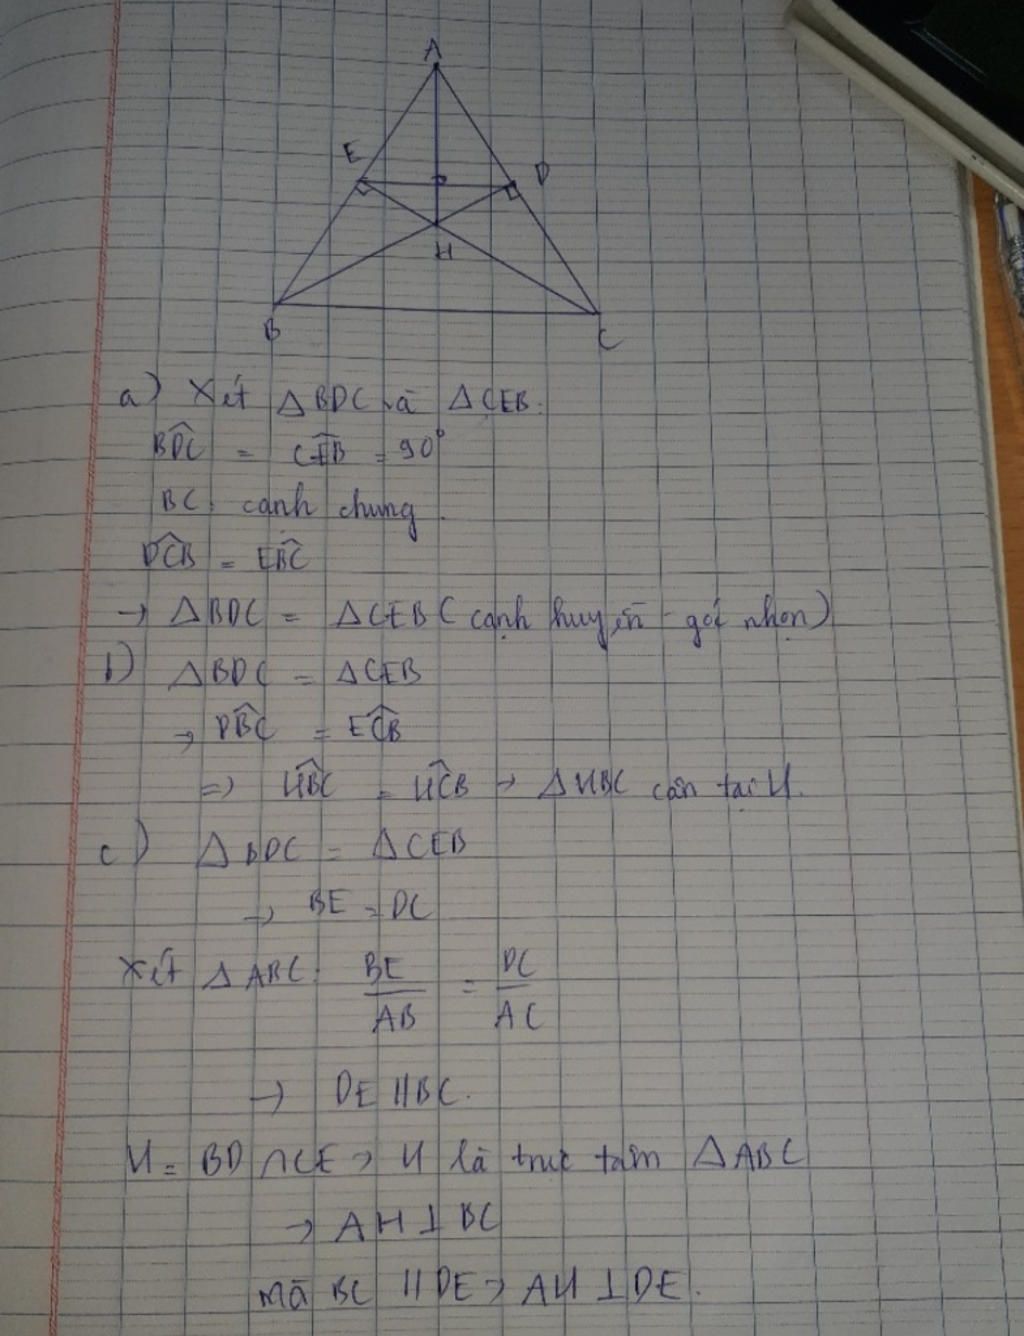 A
E
D
H
B
C
a) Xét ΔBDC và ΔCEB.
BDC^ = CEB^ = 90°
BC: cạnh chung.
DCB^ = EBC^
→ ΔBDC = ΔCEB (cạnh huyền - góc nhọn)
b) ΔBDC = ΔCEB
→ DBC^ = ECB^
=> HBC^ = HCB^ → ΔHBC cân tại H.
c) ΔBDC = ΔCEB
→ BE = DC
Xét ΔABC: BE/AB = DC/AC
→ DE // BC.
H = BD ∩ CE → H là trực tâm ΔABC
→ AH ⊥ BC
mà BC // DE → AH ⊥ DE.